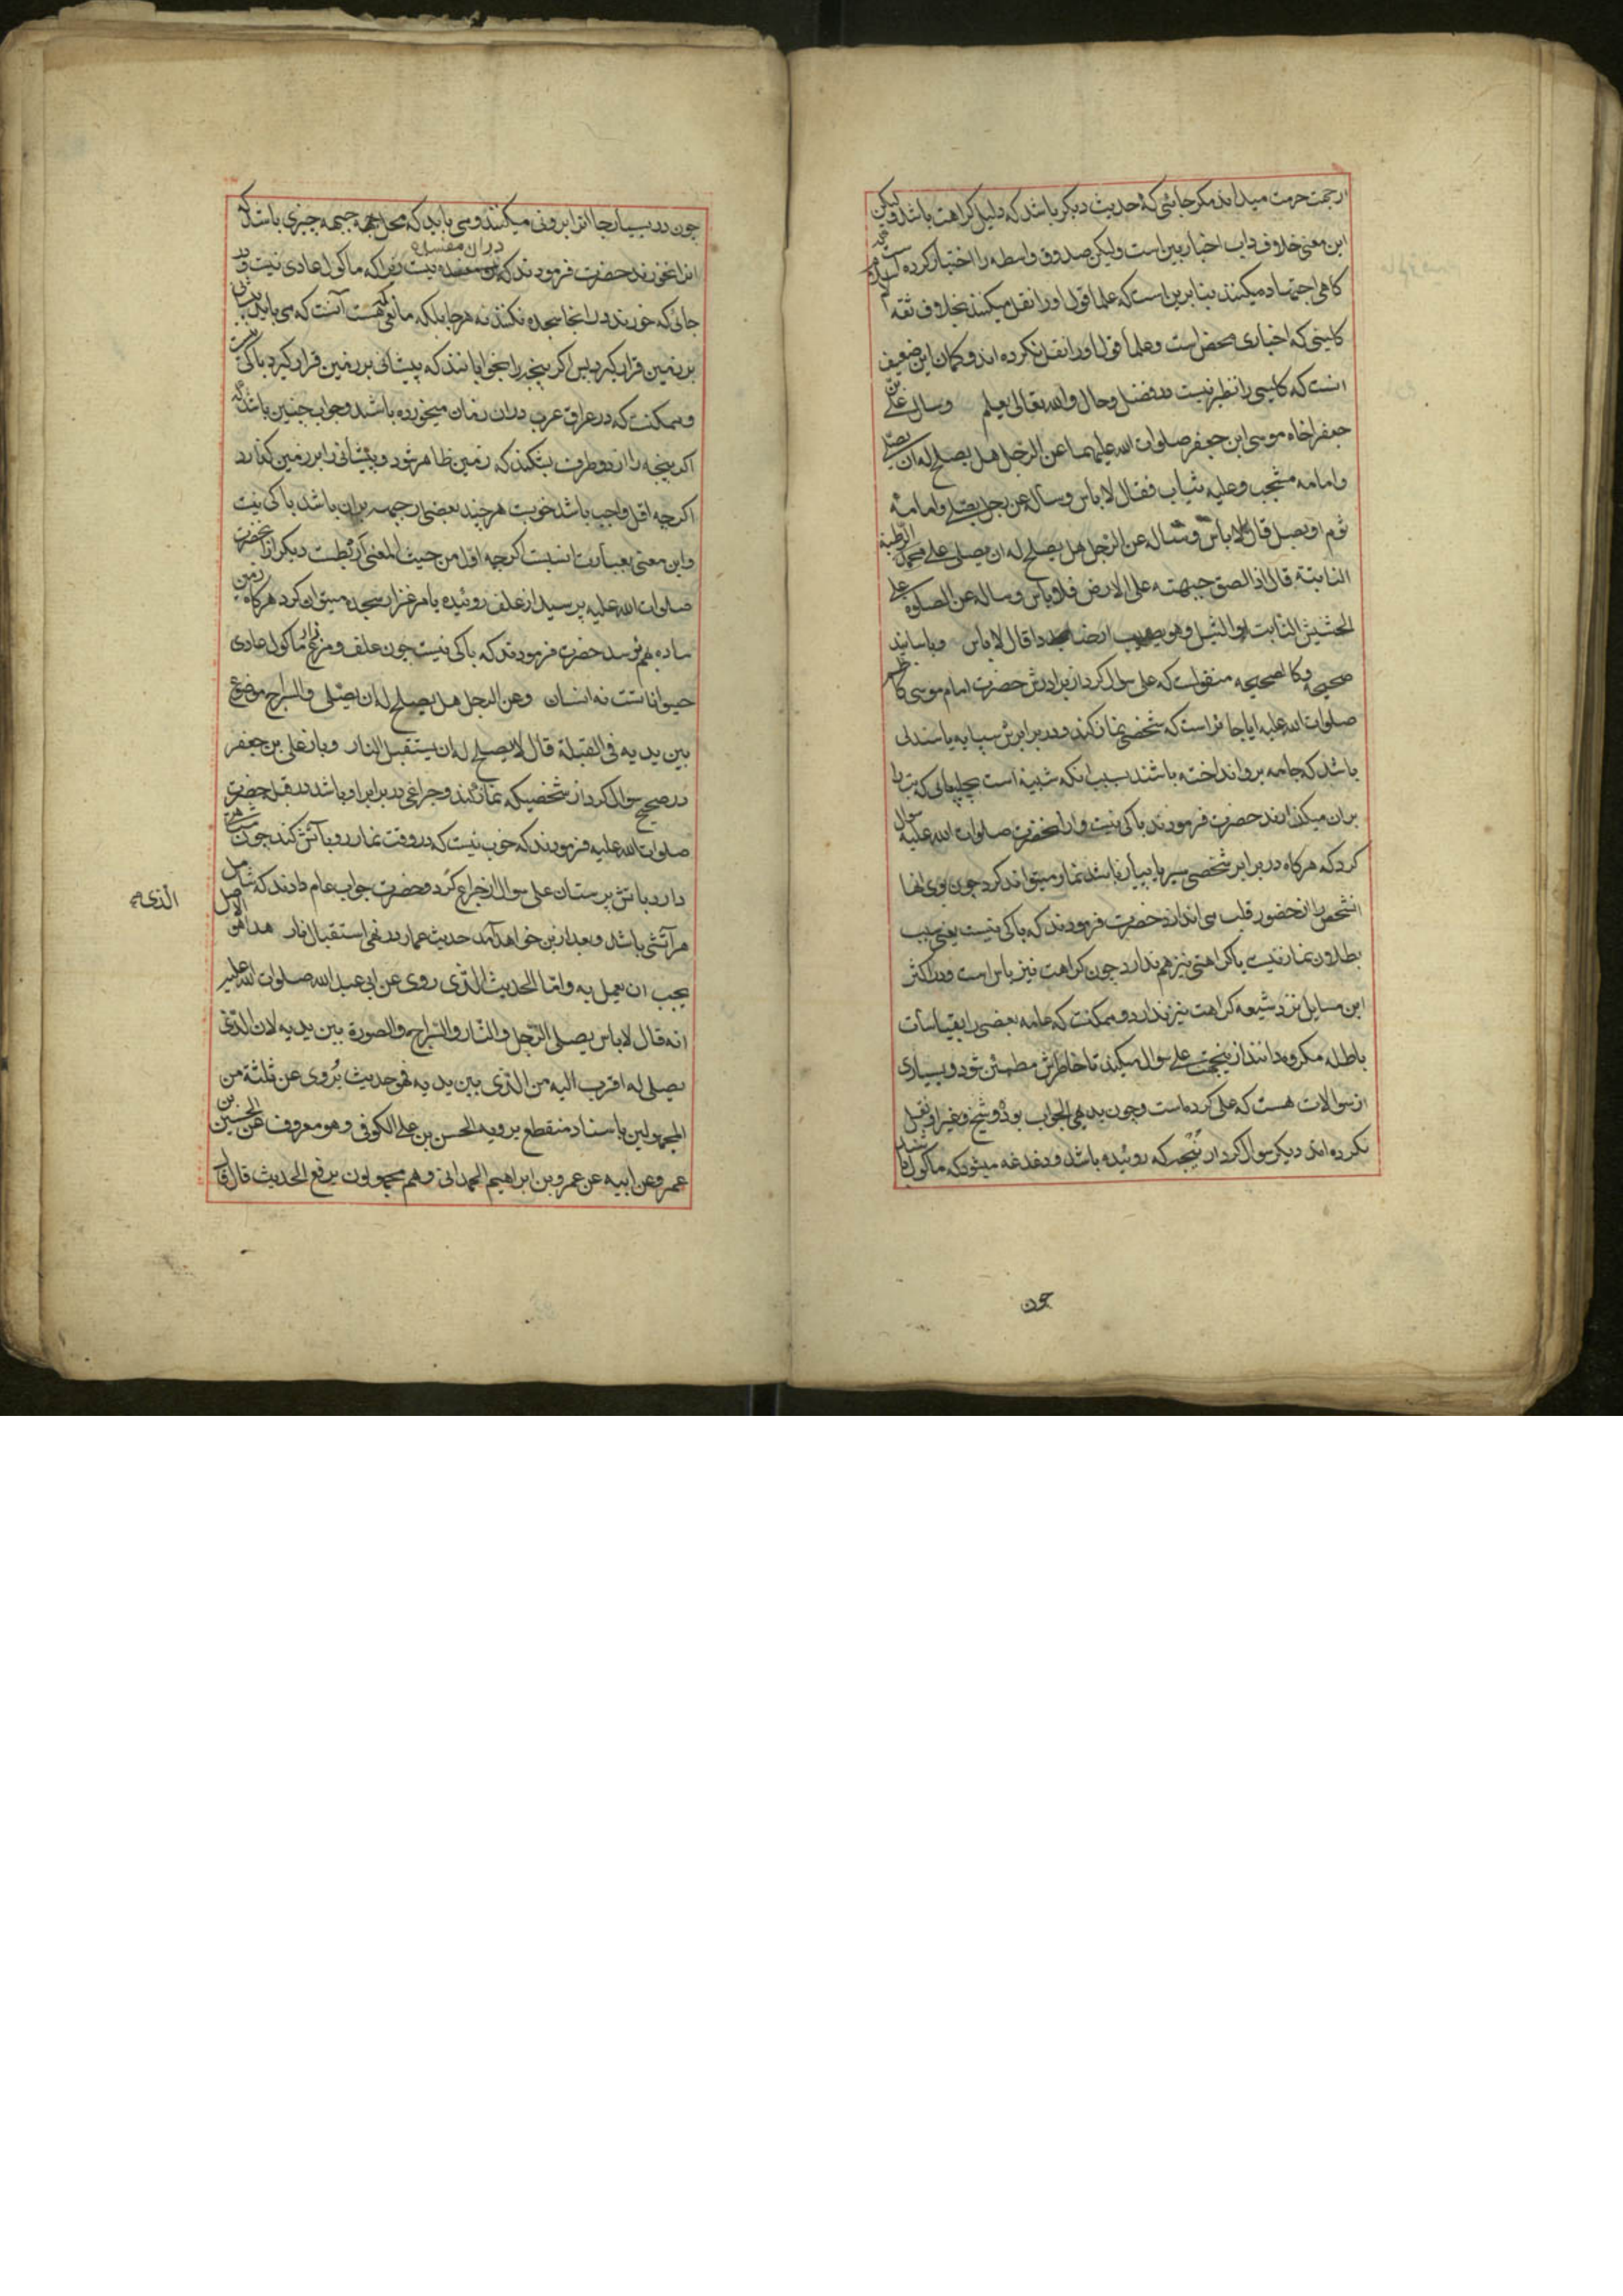 ازجهت حرمت میداند مکر جائی که حدیث دیکر باشد که دلیل کراهت باشد ولیکن
این معنی خلاف داب اخباریین است ولیکن صدوق واسطه را اختیار کرده است
کاهی اجتهاد میکنند بنا برین است که علما قول او را نقل میکنند بخلاف ثقه
کلینی که اخباری محض است وعلما قول او را نقل نکرده اند وکمان این ضعیف
انست که کلینی را نظیر نیست در فضل وحال والله تعالی یعلم وسال علی بن
جعفر اخاه موسی ابن جعفر صلوات الله علیهما عن الرجل هل یصلح له ان یصلی
وامامه مشجب وعلیه ثیاب فقال لا باس وساله عن رجل یصلی وامامه
ثوم او بصل قال لا باس وساله عن الرجل هل یصلح له ان یصلی علی الرطبة
النابتة قال اذا الصق جبهته علی الارض فلا باس وساله عن الصلوة علی
الحشیش النابت او الثیل وهو یصیب ارضا جددا قال لا باس وباسانید
صحیحه وکالصحیحه منقولست که علی سوال کرد از برادرش حضرت امام موسی کاظم
صلوات الله علیه ایا جائز است که شخصی نماز کند ودر برابرش سپایه باشد
باشد که جامه برو انداخته باشند بسبب انکه شبیه است بچلیپائی که بت را
بران میکذارند حضرت فرمودند باکی نیست واز انحضرت صلوات الله علیه سوال
کرد که هرکاه در برابر شخصی سیر یا پیاز باشد نماز میتواند کرد چون بوی انها
انشخص را از حضور قلب می اندازد حضرت فرمودند که باکی نیست یعنی سبب
بطلان نماز نیست یا کراهتی نیز هم ندارد چون کراهت نیز باس است ودر اکثر
این مسایل نزد شیعه کراهت نیز ندارد وممکنست که عامه بعضی را بقیاسات
باطله مکروه دانند ازینجهت علی سوال میکند تا خاطرش مطمئن شود وبسیاری
از سوالات هست که علی کرده است وچون بدیهی الجواب بود وشیخ وغیر او نقل
نکرده اند دیکر سوال کرد از پنجه که روئیده باشد ودغدغه میشود که ماکول باشد
چون
چون در بسیار جا انرا بروی میکنند ومی باید که محل جبهه چیزی باشد که
انرا نخورند حضرت فرمودند که دران مفسده نیست زیرا که ماکول عادی نیست ودر
جائی که خورند در انجا سجده نکنند نه هرجا بلکه مانعی که هست آنست که می باید
بر زمین قرار کیرد پس اکر پنجه را بخوابانند که پیشانی بر زمین قرار کیرد باکی نیست
وممکنست که در عراق عرب دران زمان میخورده باشند وجواب چنین باشد که
اکر پنجه را از دو طرف بشکند که زمین ظاهر شود وپیشانی را بر زمین کذارد
اکرچه اقل واجب باشد خوبست هرچند بعضی از جبهه بران باشد باکی نیست
واین معنی بعبارت انسبت اکرچه اول من حیث المعنی اربطست دیکر از انحضرت
صلوات الله علیه پرسید از علف روئیده یا مرغزار سجده میتوان کرد هرکاه زمین
ساده بهم رسد حضرت فرمودند که باکی نیست چون علف ومرغزار ماکول عادی
حیواناتست نه انسان وعن الرجل هل یصلح له ان یصلی والسراج موضوع
بین یدیه فی القبلة قال لا یصلح له ان یستقبل النار وباز علی بن جعفر
در صحیح سوال کرد از شخصیکه نماز کند وچراغی در برابر او باشد در قبله حضرت
صلوات الله علیه فرمودند که خوب نیست که در وقت نماز رو بآتش کند چون مشابهت
دارد باتش پرستان علی سوال از چراغ کرد وحضرت جواب عام دادند که شامل
هر آتشی باشد وبعد ازین خواهد آمد حدیث عمار در نهی استقبال نار هذا هو الاصل
الذی
یجب ان یعمل به واما الحدیث الذی روی عن ابی عبد الله صلوات الله علیه
انه قال لا باس یصلی الرجل والنار والسراج والصورة بین یدیه لان الذی
یصلی له اقرب الیه من الذی بین یدیه فهو حدیث یروی عن ثلثة من
المجهولین باسناد منقطع یرویه الحسن بن علی الکوفی وهو معروف عن الحسین بن
عمرو عن ابیه عن عمرو بن ابراهیم الهمدانی وهم مجهولون یرفع الحدیث قال قال